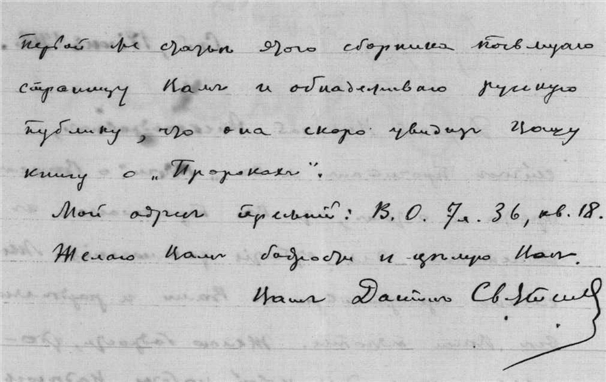 первой же статьи этого сборника посвящаю
страницу Вамъ и обнадеживаю русскую
публику, что она скоро увидит Вашу
книгу о „Пророкахъ“.
Мой адрес прежній: В. О. 7 л. 36, кв. 18.
Желаю Вамъ бодрости и цѣлую Васъ.
Вашъ Давидъ Св